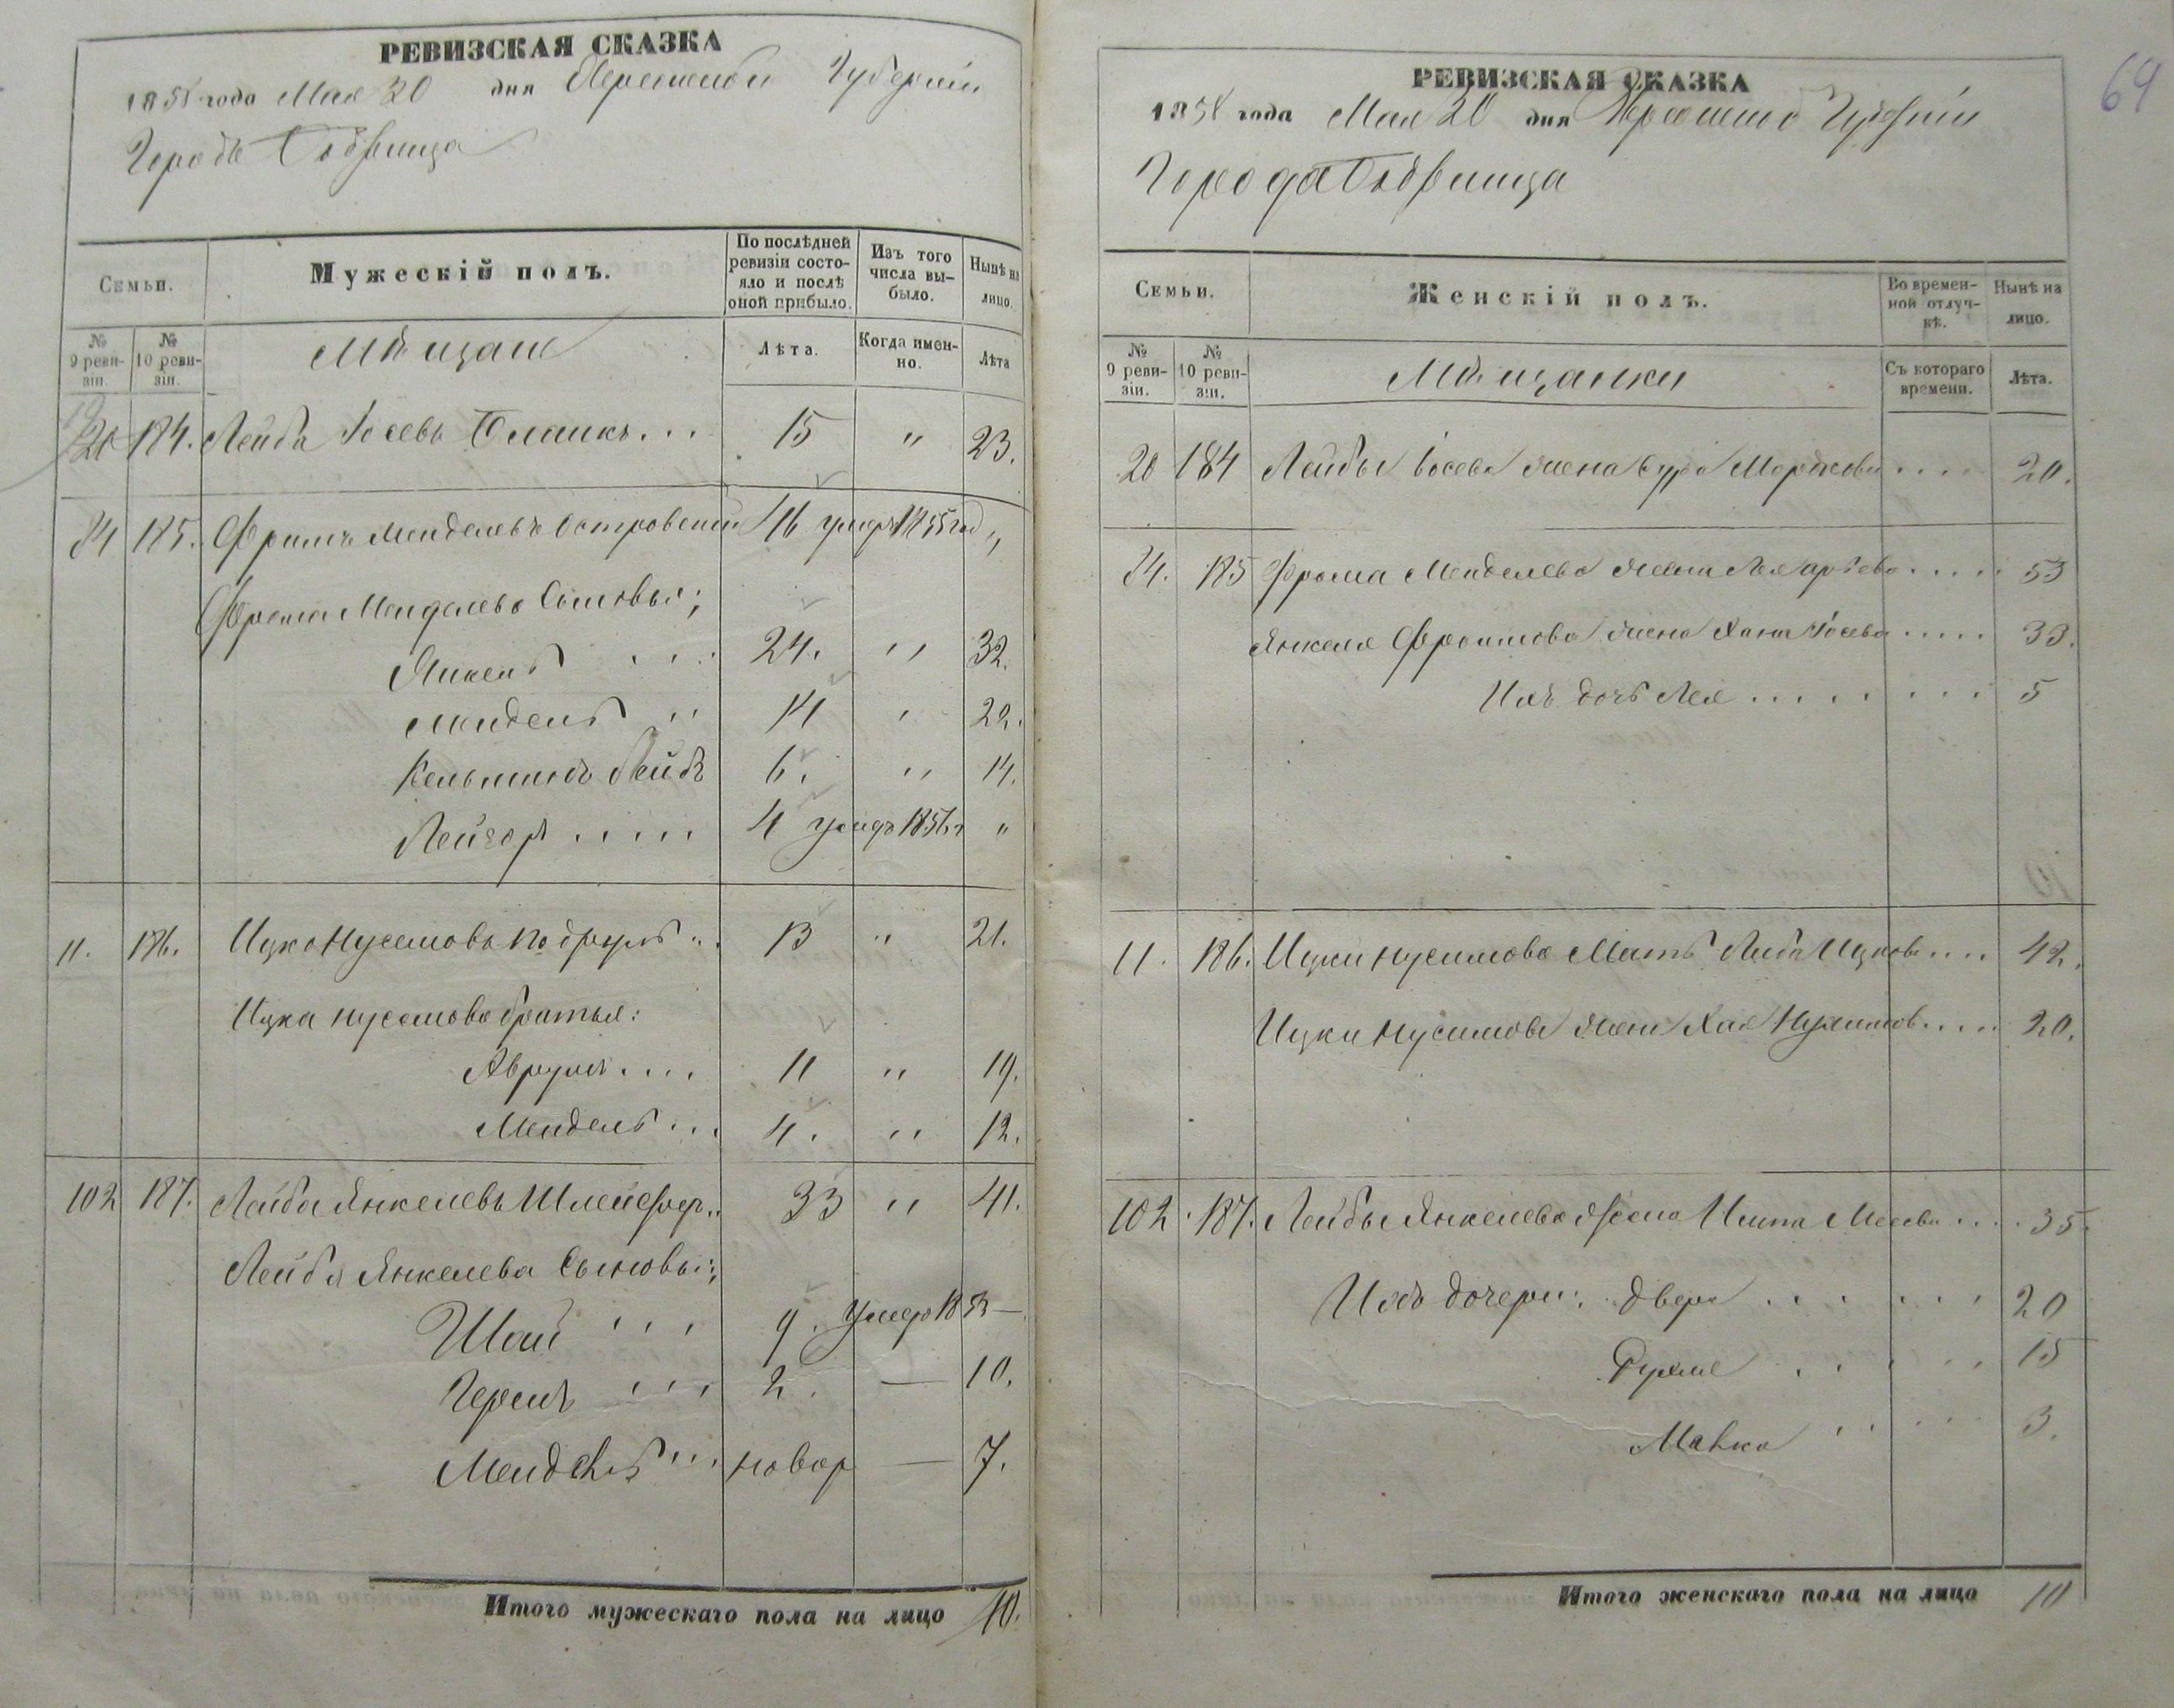 РЕВИЗСКАЯ СКАЗКА
1858 года Мая 20 дня Херсонской Губерніи
Города Бобринца
Семьи.
Мужескій полъ.
По послѣдней ревизіи состояло и послѣ оной прибыло.
Изъ того числа выбыло.
Нынѣ на лицо.
№ 9 ревизіи.
№ 10 ревизіи.
Мѣщане
Лѣта.
Когда именно.
Лѣта
20 184. Лейба Іосевъ Бланкъ... 15 " 23.
84 185. Фроимъ Менделевъ Островскій 46 умеръ 1855 год "
Фроима Менделева Сыновья;
Янкель ... 24. " 32.
Мендель .. 14 " 22.
Лейбъ 6. " 14.
Лейзоръ ..... 4 умеръ 185 "
11. 186. Ицко Нусимовъ 13 " 21.
Ицка Нусимова братья:
Аврумъ.... 11 " 19.
Мендель... 4. " 12.
102 187. Лейба Янкелевъ Шлейферъ.. 33 " 41.
Лейбы Янкелева Сыновья:
Шая ''' 9. умеръ 1853 —
Гершъ ''' 2. — 10.
Мендель ''' новор — 7.
Итого мужескаго пола на лицо 10.
69
РЕВИЗСКАЯ СКАЗКА
1858 года Мая 20 дня Херсонской Губерніи
Города Бобринца
Семьи.
Женскій полъ.
Во временной отлучкѣ.
Нынѣ на лицо.
№ 9 ревизіи.
№ 10 ревизіи.
Мѣщанки
Съ котораго времени.
Лѣта.
20 184 Лейбы Іосева жена Сура Моркова .... 20.
84. 185 Фроима Менделева жена Лея ..... 53
Янкеля Фроимова жена Хана Іосева ..... 33.
Ихъ дочь Лея ........ 5
11. 186. Ицки Нусимова Мать Ицкова .... 42.
Ицки Нусимова жена Хая ..... 20.
102. 187. Лейбы Янкелева жена .... 35.
Ихъ дочери: Двера ...... 20
Рухля ..... 15
Малка ..... 3.
Итого женскаго пола на лицо 10